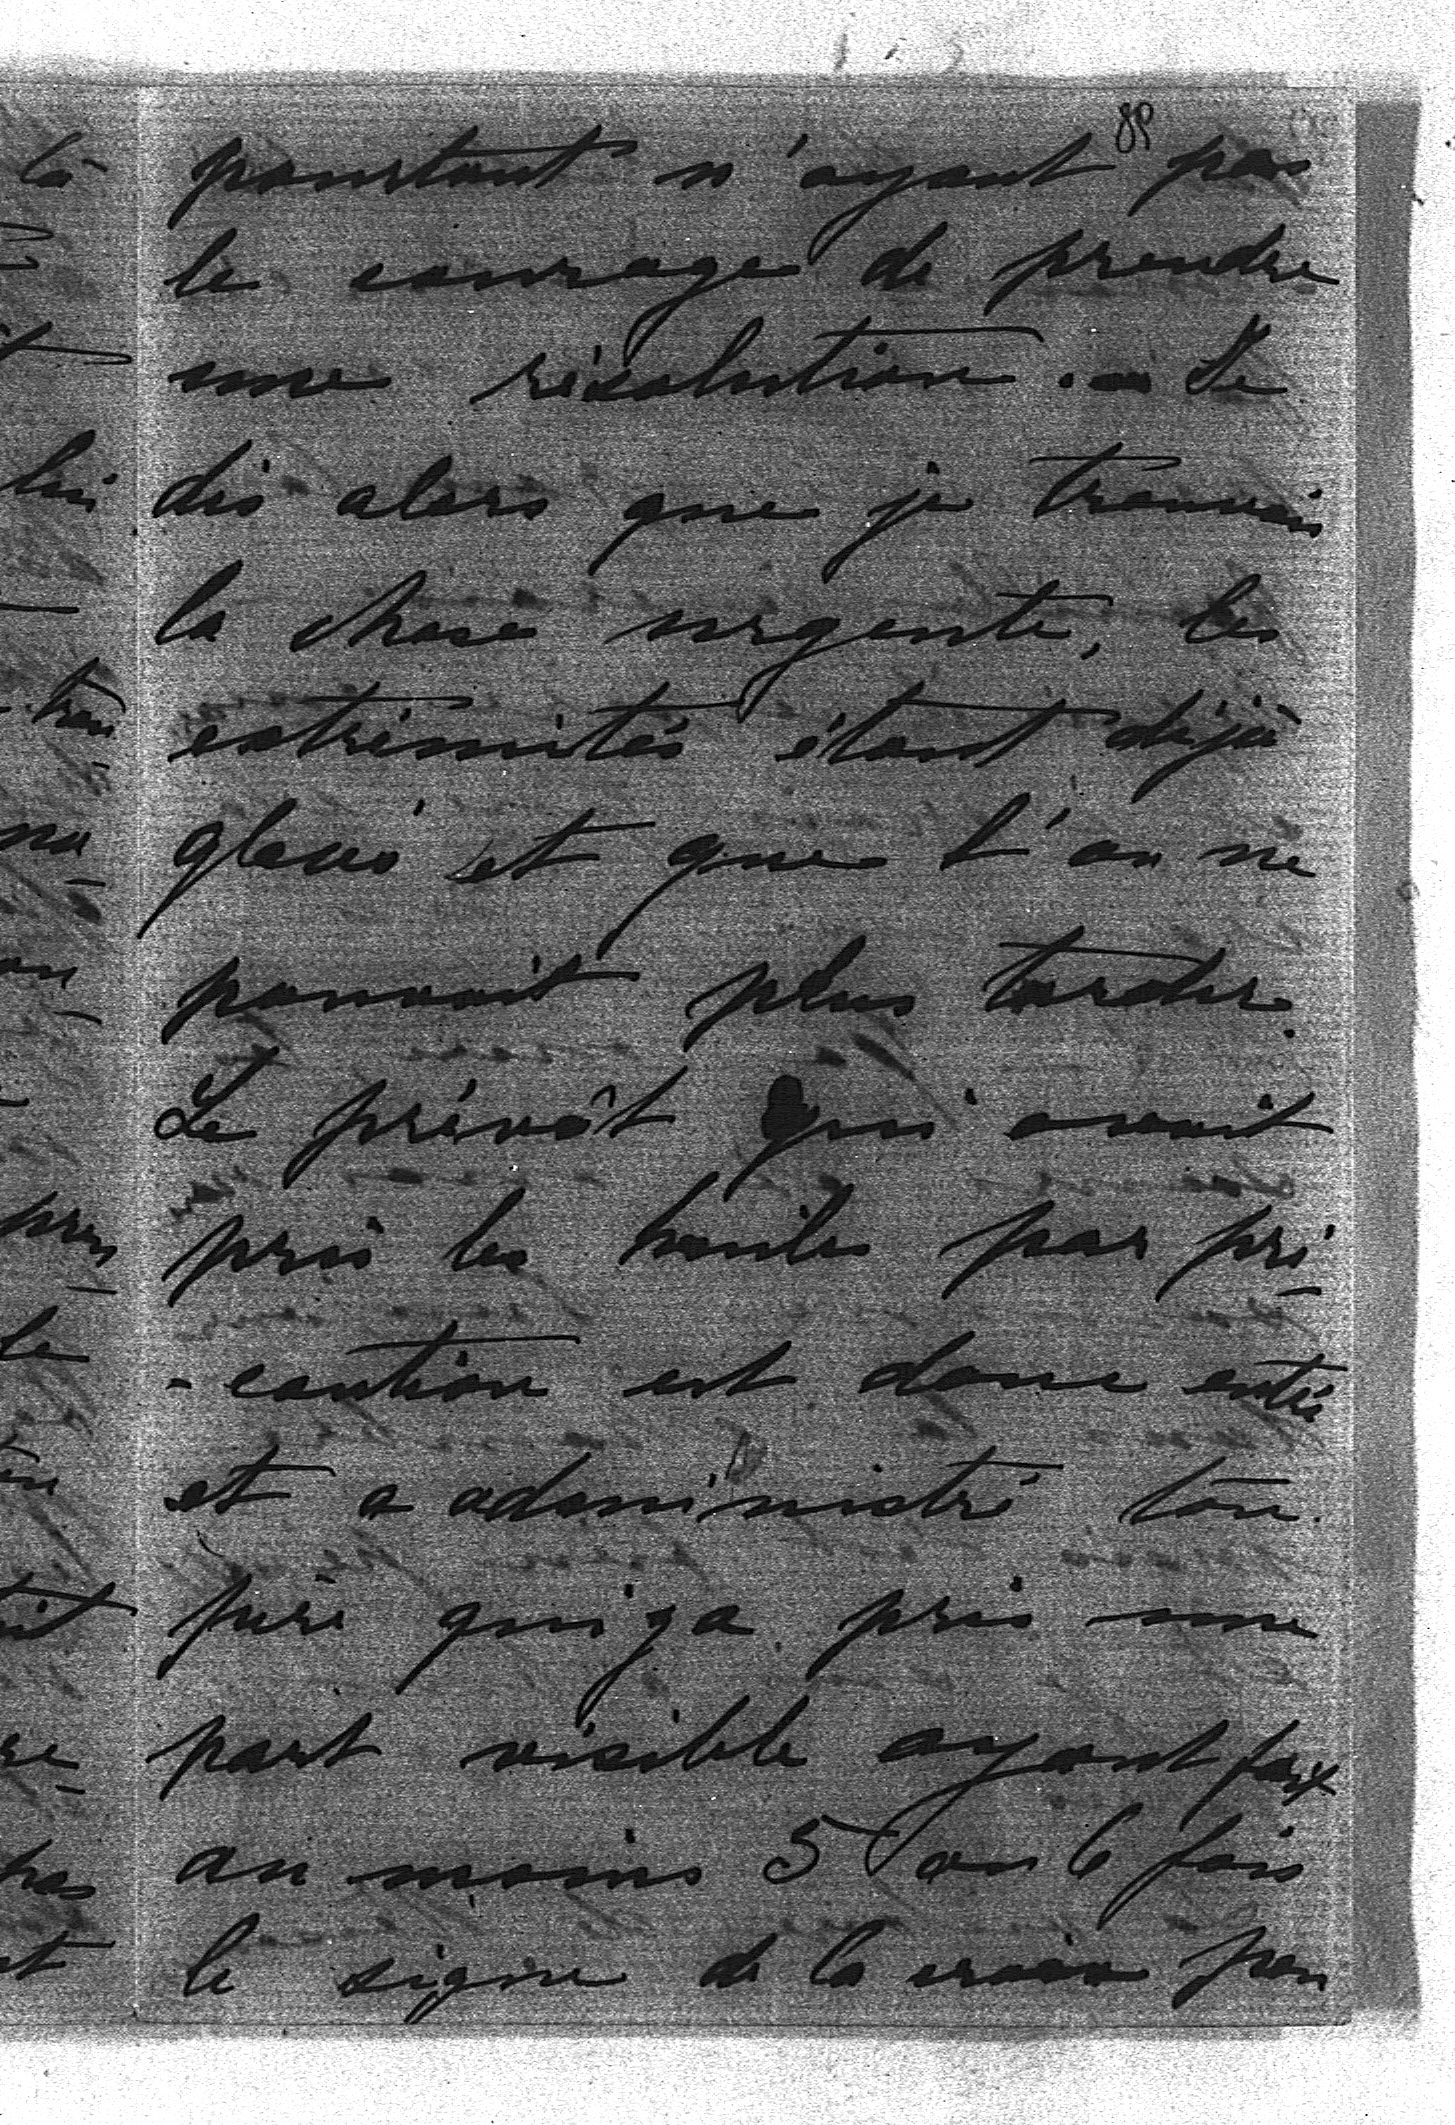 89
pourtant n'ayant pas
le courage de prendre
une résolution. - Je
dis alors que je trouvais
la chose urgente, les
extrémités étant déjà
glacés et que l'on ne
pouvait plus tarder.
Le prévôt qui avait
pris les huiles par pré-
-caution est donc entré
et a administré ton
père qui y a pris une
part visible ayant fait
au moins 5 ou 6 fois
le signe de la croix pen